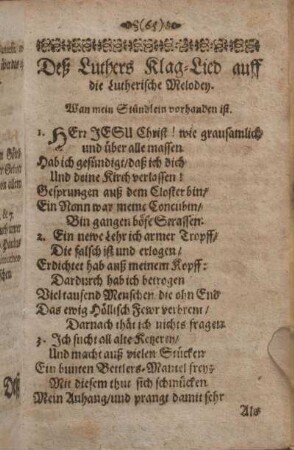 (65)
Deß Luthers Klag-Lied auff
die Lutherische Melodey.
Wan mein Stündlein vorhanden ist.
1. HErr JESU Christ! wie grausamlich
und über alle massen
Hab ich gesündigt/daß ich dich
Und deine Kirch verlassen!
Gesprungen auß dem Closter bin/
Ein Nonn war meine Concubin/
Bin gangen böse Strassen.
2. Ein newe Lehr ich armer Tropff/
Die falsch ist und erlogen/
Erdichtet hab auß meinem Kopff:
Dardurch hab ich betrogen
Viel tausend Menschen die ohn End
Das ewig Höllisch Fewr verbrent/
Darnach thät ich nichts fragen.
3. Ich sucht all alte Ketzerey/
Und macht auß vielen Stücken
Ein bunten Bettlers-Mantel frey:
Mit diesem thut sich schmücken
Mein Anhang/und prangt damit sehr
Als